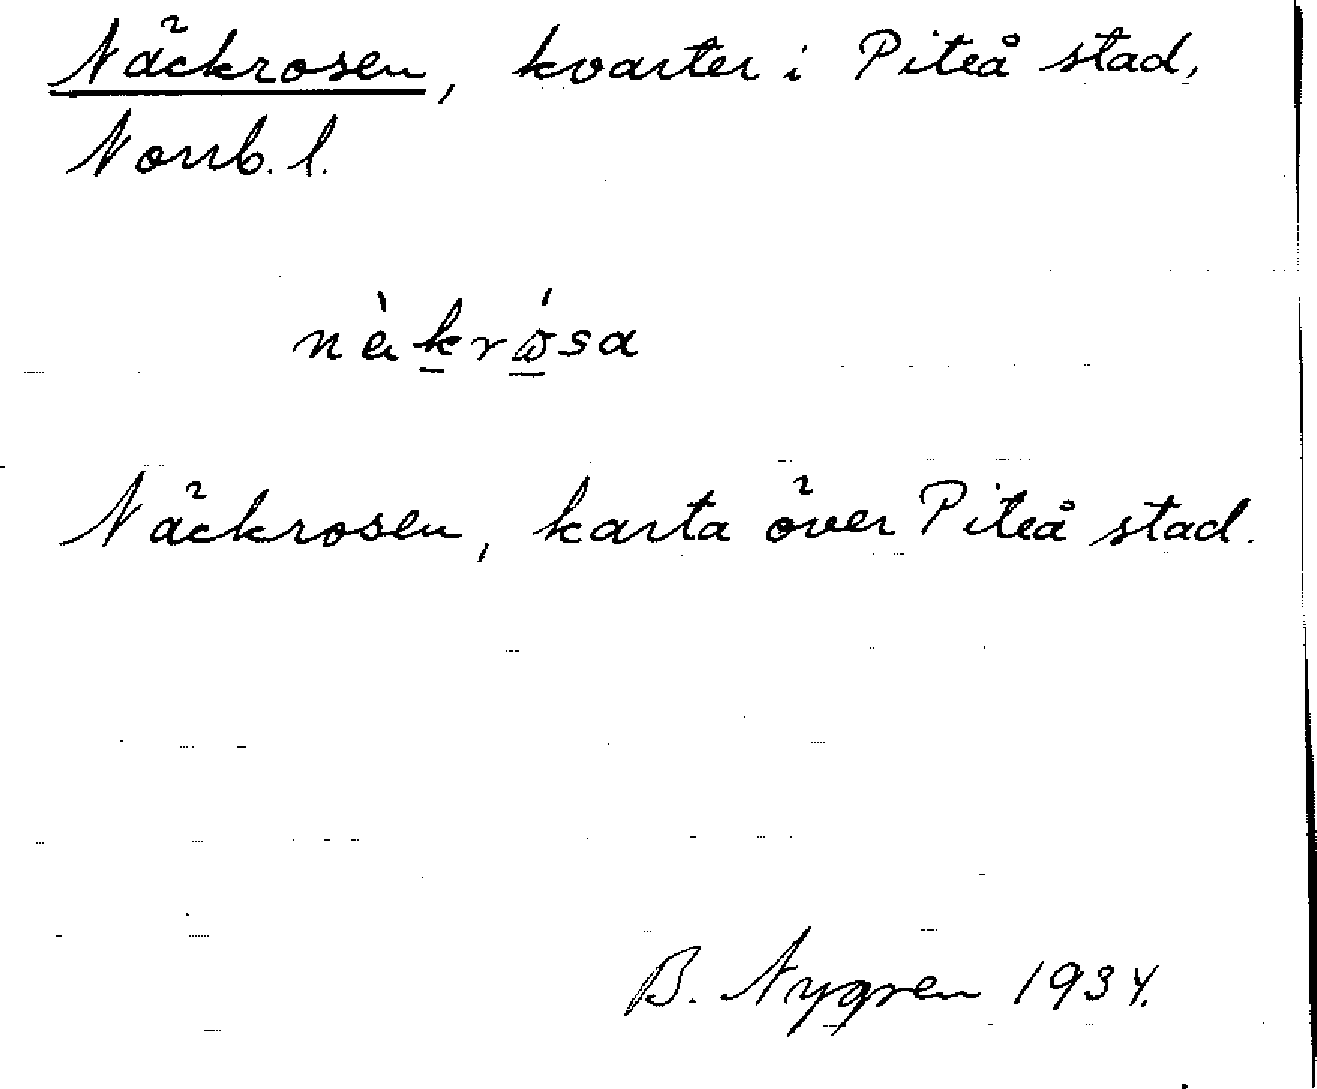 Näckrosen, kvarter i Piteå stad,
Norrb. l.
Näckrosen, karta över Piteå stad.
B. Nygren 1934.